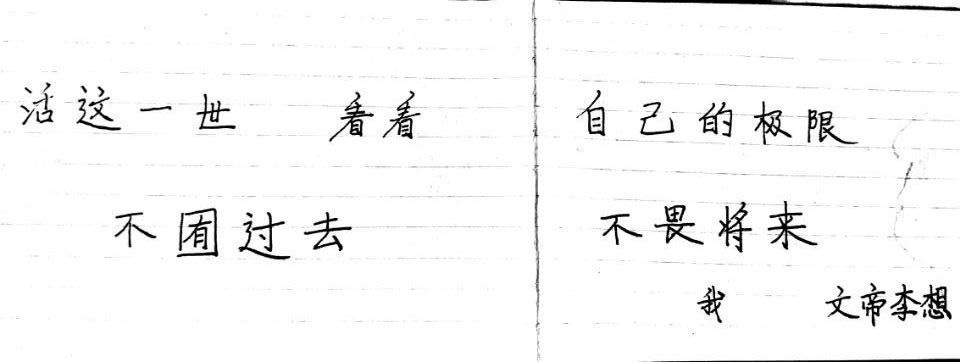 活这一世 看看 自己的极限
不囿过去 不畏将来
我 文帝李想